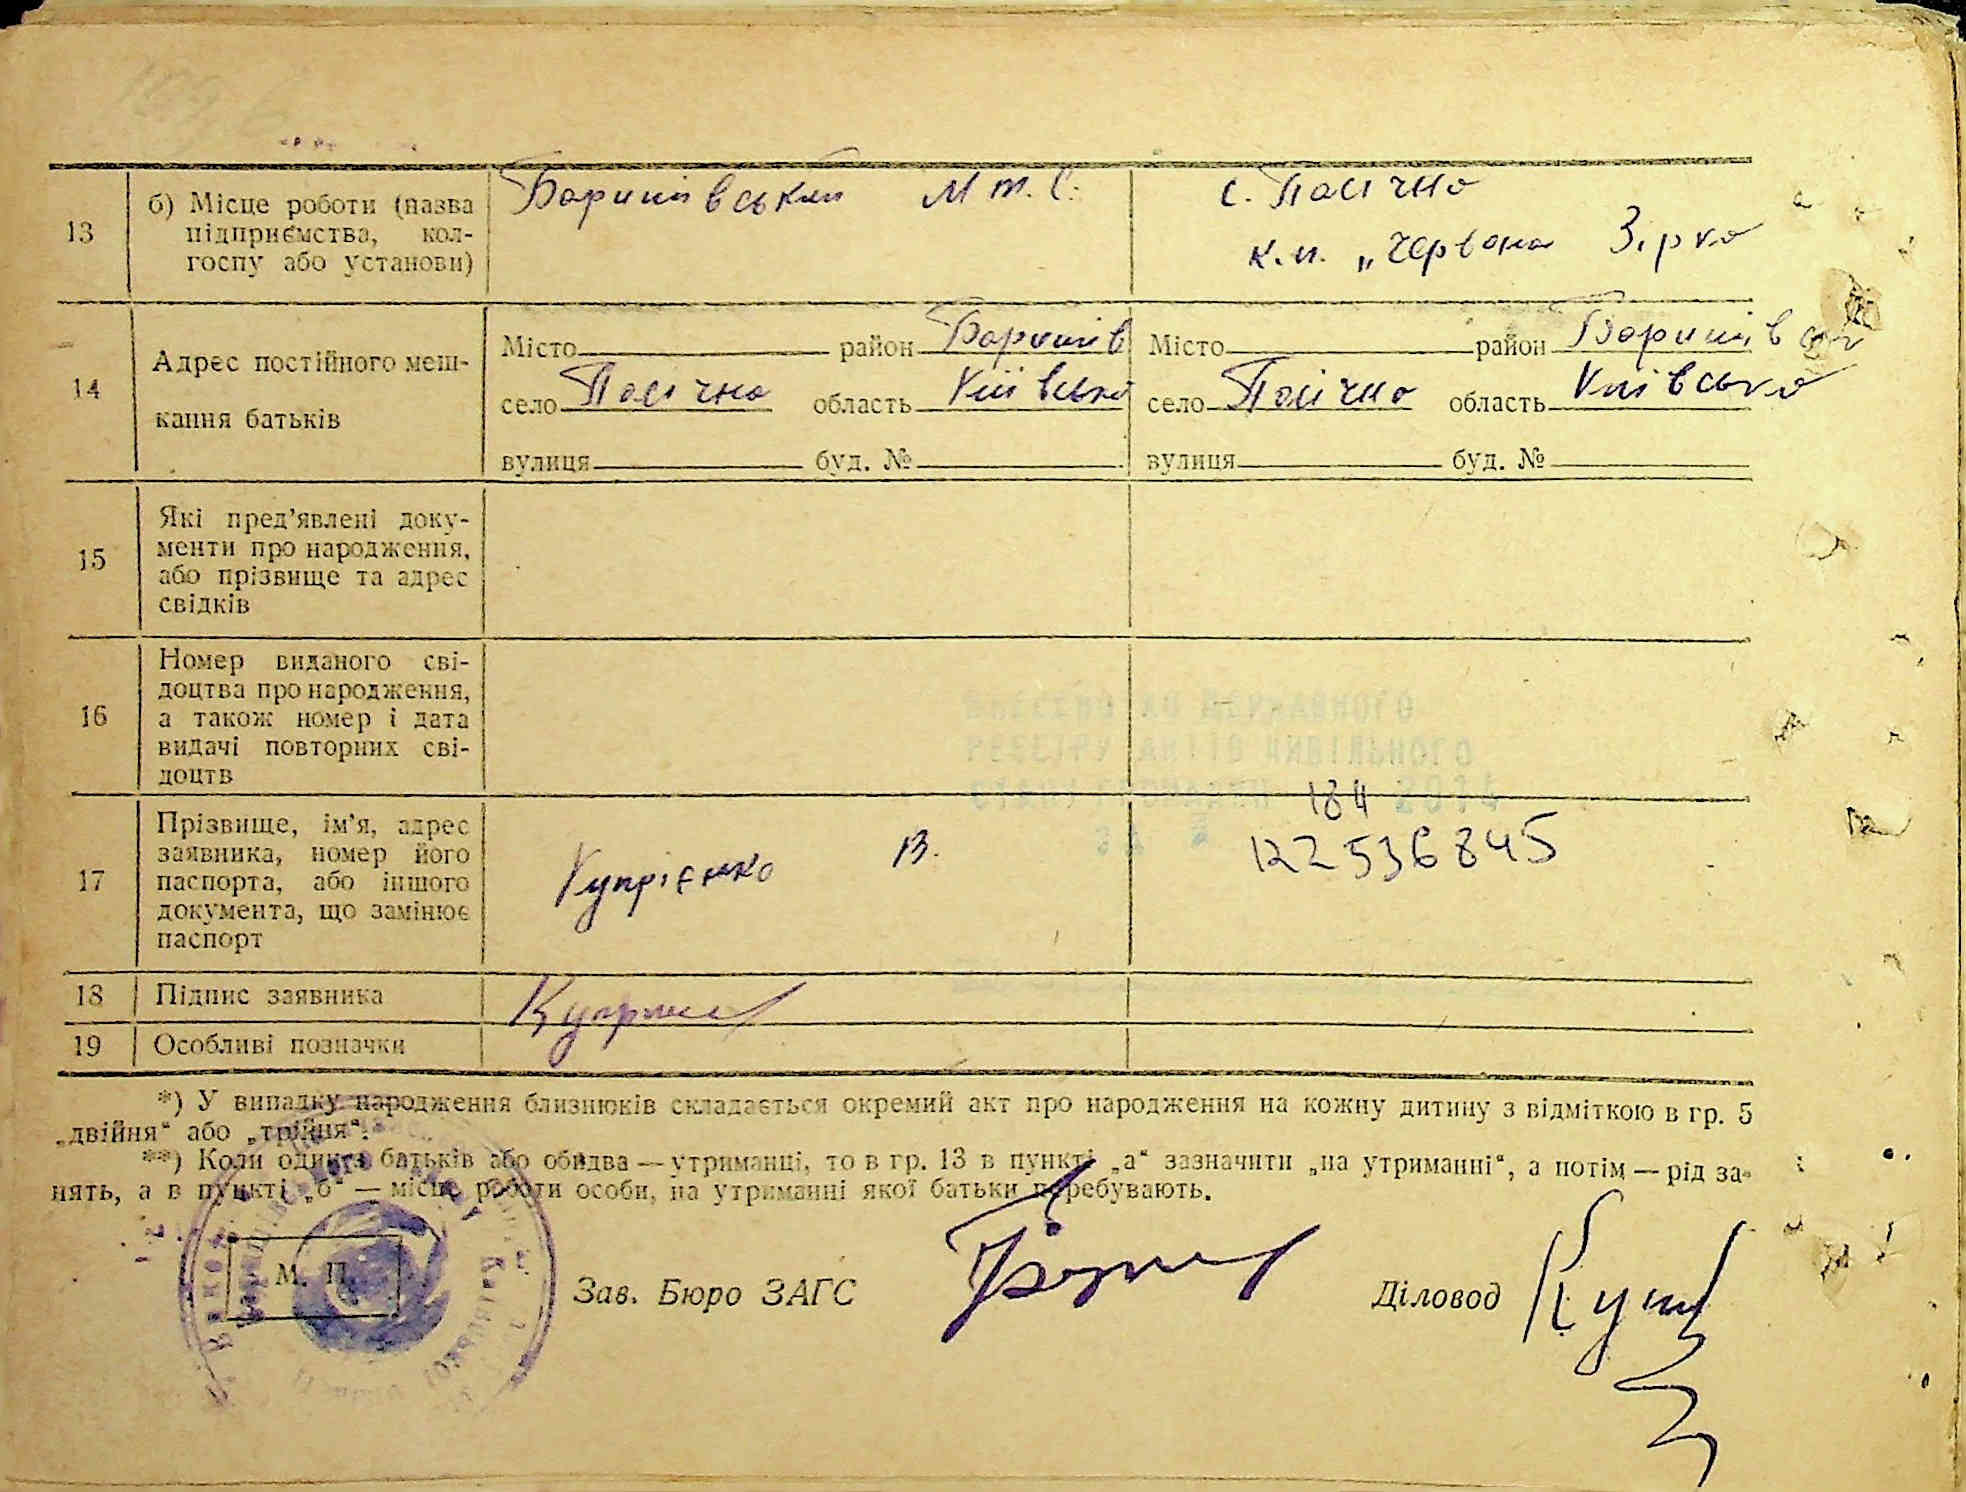 13
б) Місце роботи (назва
підприємства, кол-
госпу або установи)
Баришівський М.т.с.
с. Пасічна
к.п. „Червона Зірка
14
Адрес постійного меш-
кання батьків
Місто район Баришів
село Пасічна область Київська
вулиця буд. №
Місто район Баришівськ
село Пасічна область Київська
вулиця буд. №
15
Які пред’явлені доку-
менти про народження,
або прізвище та адрес
свідків
16
Номер виданого сві-
доцтва про народження,
а також номер і дата
видачі повторних сві-
доцтв
ВНЕСЕНО ДО ДЕРЖАВНОГО
РЕЄСТРУ АКТІВ ЦИВІЛЬНОГО
СТАНУ ГРОМАДЯН 184 2014
ЗА №
17
Прізвище, ім’я, адрес
заявника, номер його
паспорта, або іншого
документа, що замінює
паспорт
Купрієнко В.
122536845
18
Підпис заявника
19
Особливі позначки
*) У випадку народження близнюків складається окремий акт про народження на кожну дитину з відміткою в гр. 5
„двійня“ або „трійня“.
**) Коли один з батьків або обидва — утриманці, то в гр. 13 в пункті „а“ зазначити „на утриманні“, а потім — рід за-
нять, а в пункті „б“ — місце роботи особи, на утриманні якої батьки перебувають.
М. П.
Зав. Бюро ЗАГС
Діловод